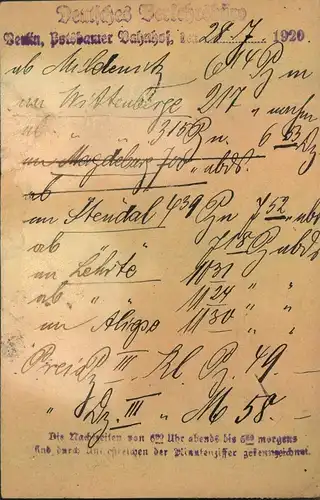 Deutsches Verkehrsbüro
Berlin, Potsdamer Bahnhof, den 28.7. 1920
ab Mildenitz 614 Pz n
an Wittenberge 217 "
ab " " 315 Pz n. 6 53 Dz
an Magdeburg 708 " abds.
ab
an Stendal 439 Pz n 7 52 "
ab " " 718 Pz abds
an Lehrte 1031 " "
ab " " 1124 " "
an 1130 " "
Preis Pz III. Kl. Pz. 49 —
" Dz. III " M 58. —
Die Nachtzeiten von 6⁰⁰ Uhr abends bis 5⁵⁹ morgens
sind durch Unterstreichen der Minutenziffer gekennzeichnet.